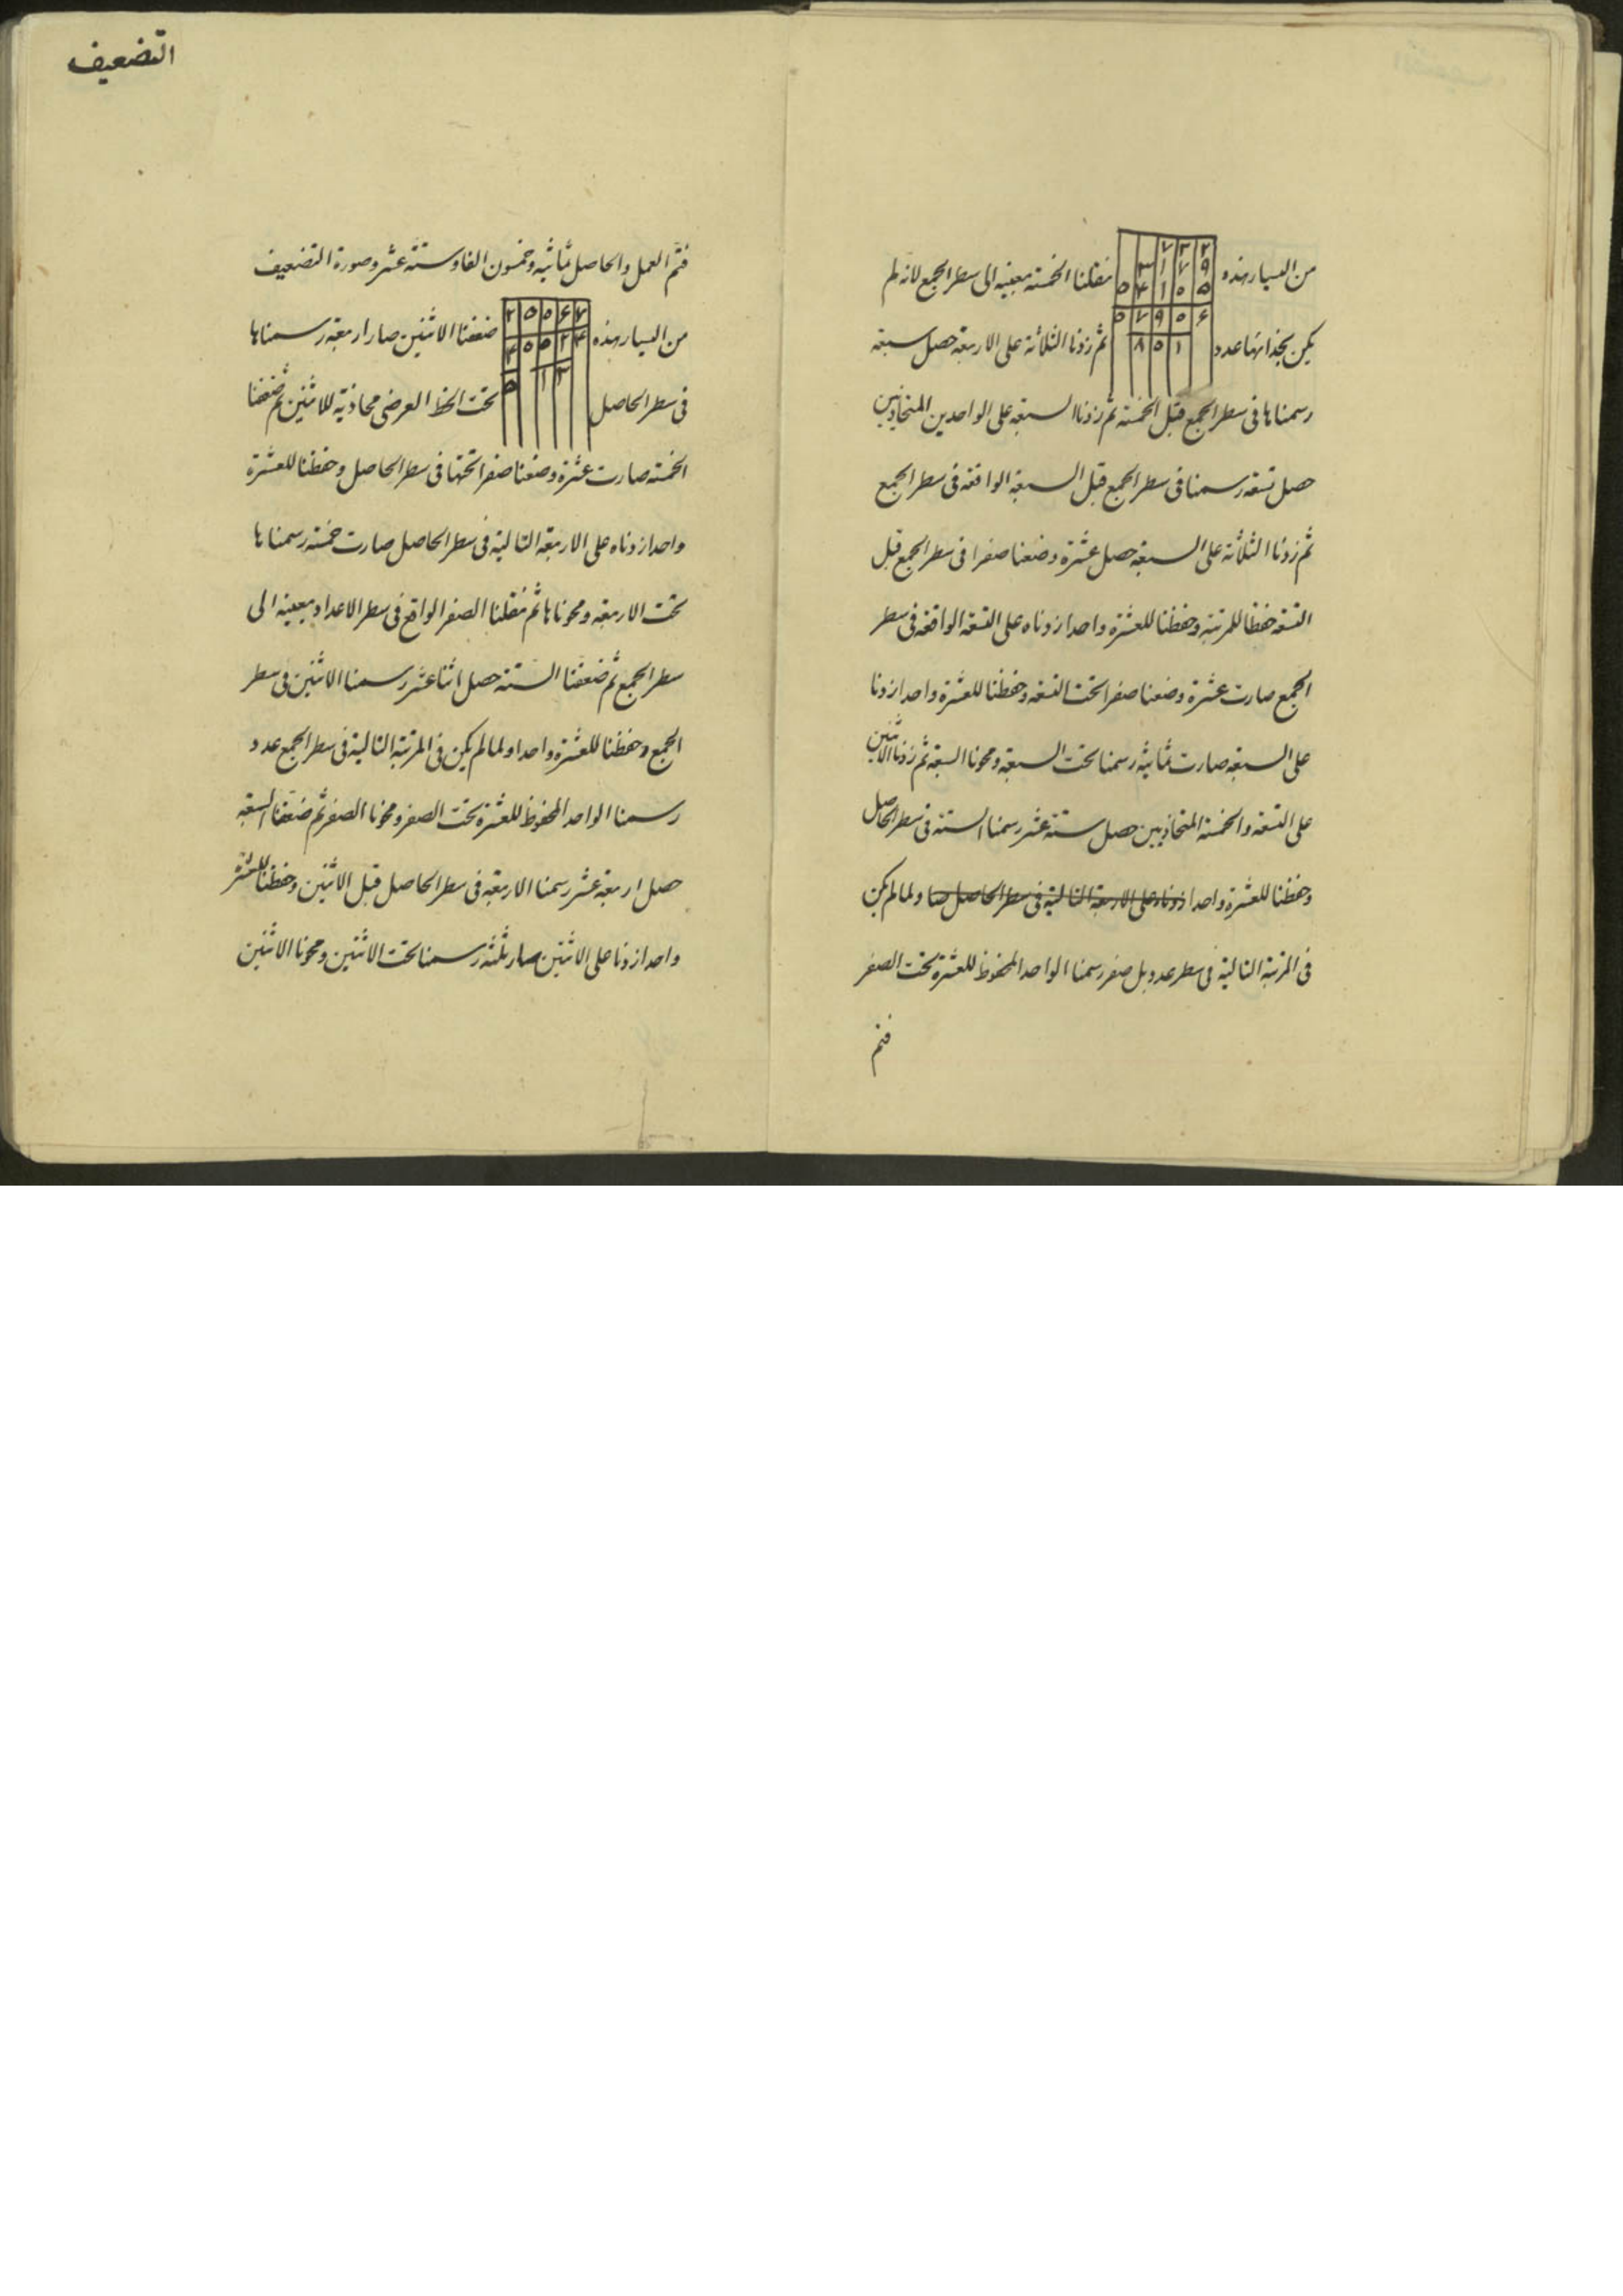 من اليسار هذه نقلنا الخمسة بعينه الى سطر الجمع لانه لم
٢ ٣ ٧
٩ ٧ ١ ٣
٥ ٥ ١ ۴ ٥
۶ ٥ ٩ ٧ ٥
١ ٥ ٨
يكن بحذائها عدد ثم زدنا الثلاثة على الاربعة حصل سبعة
رسمناها فى سطر الجمع قبل الخمسة ثم زدنا السبعة على الواحدين المتحاذيين
حصل تسعة رسمنا فى سطر الجمع قبل السبعة الواقعة فى سطر الجمع
ثم زدنا الثلاثة على السبعة حصل عشرة وضعنا صفرا فى سطر الجمع قبل
التسعة حفظا للمرتبة وحفظنا للعشرة واحدا زدناه على التسعة الواقعة فى سطر
الجمع صارت عشرة وضعنا صفرا تحت التسعة وحفظنا للعشرة واحدا زدنا
على السبعة صارت ثمانية رسمنا تحت السبعة ومحونا السبعة ثم زدنا الاثنين
على التسعة والخمسة المتحاذيين حصل ستة عشر رسمنا الستة فى سطر الحاصل
وحفظنا للعشرة واحدا زدناه على الاربعة التالية فى سطر الحاصل صا ولما لم يكن
فى المرتبة التالية فى سطر عدد بل صفر رسمنا الواحد المحفوظ للعشرة تحت الصفر
فتم
التضعيف
فتم العمل والحاصل ثمانية وخمسون الفا وستة عشر وصورة التضعيف
من اليسار هذه ضعفنا الاثنين صار اربعة رسمناها
٧ ۶ ٥ ٥ ٢
۴ ٢ ٥ ٥ ۴
٣ ١ ٥
فى سطر الحاصل تحت الخط العرضى محاذية للاثنين ثم ضعفنا
الخمسة صارت عشرة وضعنا صفرا تحتها فى سطر الحاصل وحفظنا للعشرة
واحدا زدناه على الاربعة التالية فى سطر الحاصل صارت خمسة رسمناها
تحت الاربعة ومحوناها ثم نقلنا الصفر الواقع فى سطر الاعداد بعينه الى
سطر الجمع ثم ضعفنا الستة حصل اثنا عشر رسمنا الاثنين فى سطر
الجمع وحفظنا للعشرة واحدا ولما لم يكن فى المرتبة التالية فى سطر الجمع عدد
رسمنا الواحد المحفوظ للعشرة تحت الصفر ومحونا الصفر ثم ضعفنا السبعة
حصل اربعة عشر رسمنا الاربعة فى سطر الحاصل قبل الاثنين وحفظنا للعشرة
واحدا زدنا على الاثنين صار ثلثة رسمنا تحت الاثنين ومحونا الاثنين